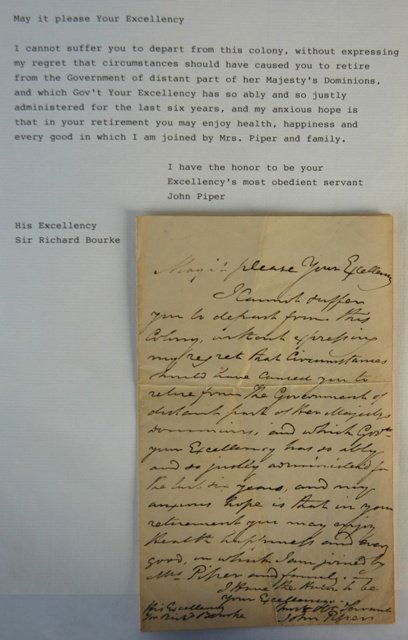 May it please Your Excellency
I cannot suffer you to depart from this colony, without expressing
my regret that circumstances should have caused you to retire
from the Government of distant part of her Majesty's Dominions,
and which Gov't Your Excellency has so ably and so justly
administered for the last six years, and my anxious hope is
that in your retirement you may enjoy health, happiness and
every good in which I am joined by Mrs. Piper and family.
I have the honor to be your
Excellency's most obedient servant
John Piper
His Excellency
Sir Richard Bourke
May it please Your Excellency
I Cannot suffer
you to depart from this
Colony, without expressing
my regret that Circumstances
should have caused you to
retire from the Government of
distant part of Her Majestys
Dominions, and which Govt
your Excellency has so ably
and so justly administered for
the last six years, and my
anxious hope is that in your
retirement you may enjoy
Health happiness and every
good, in which I am joined by
Mrs Piper and family.
I have the honor to be
Your Excellencys
most Obt Servant
John Piper
His Excellency
Sir Richd Bourke